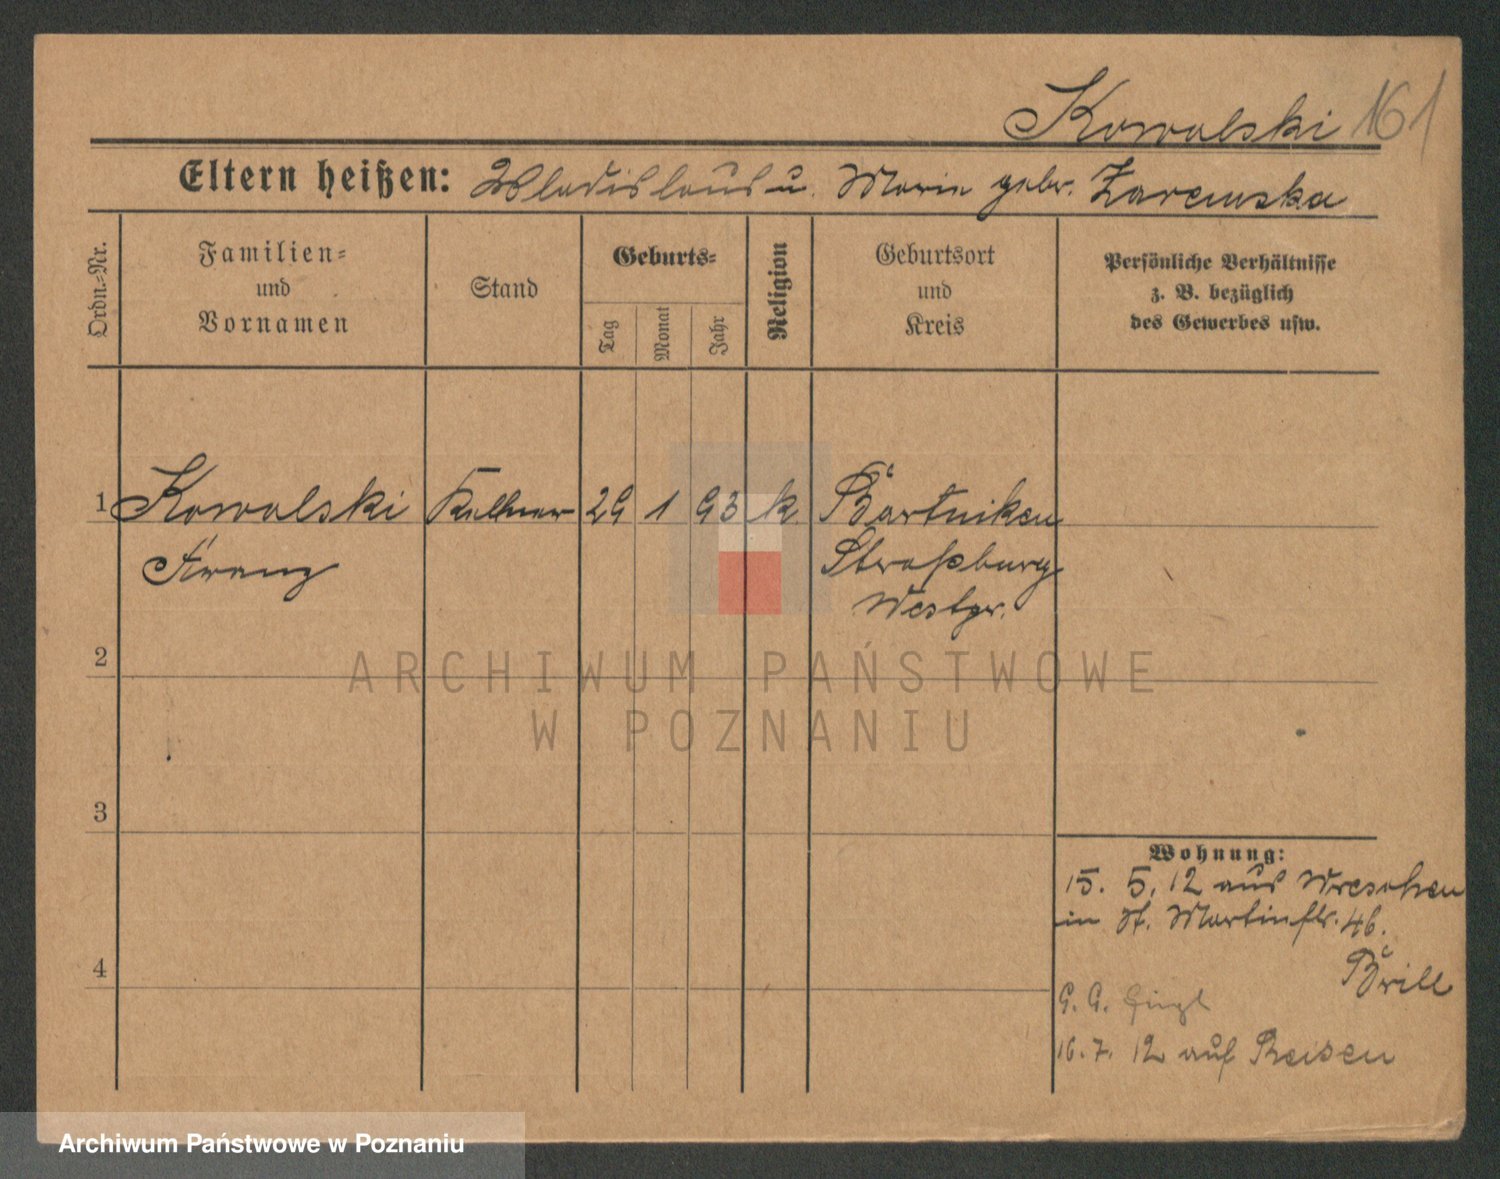 Kowalski 161
Eltern heißen: Wladislaus u. Marie gebr. Zaremska
Ordn.-Nr.
Familien-
und
Vornamen
Stand
Geburts-
Tag
Monat
Jahr
Religion
Geburtsort
und
Kreis
Persönliche Verhältnisse
z. B. bezüglich
des Gewerbes usw.
1 Kowalski Kellner 29 1 93 k Bartniken
Franz Straßburg
Westpr.
2
ARCHIWUM PAŃSTWOWE
W POZNANIU
3
Wohnung:
15. 5. 12 aus Wreschen
in St. Martinstr. 46.
4
Brill
16. 7. 12 auf Reisen
Archiwum Państwowe w Poznaniu